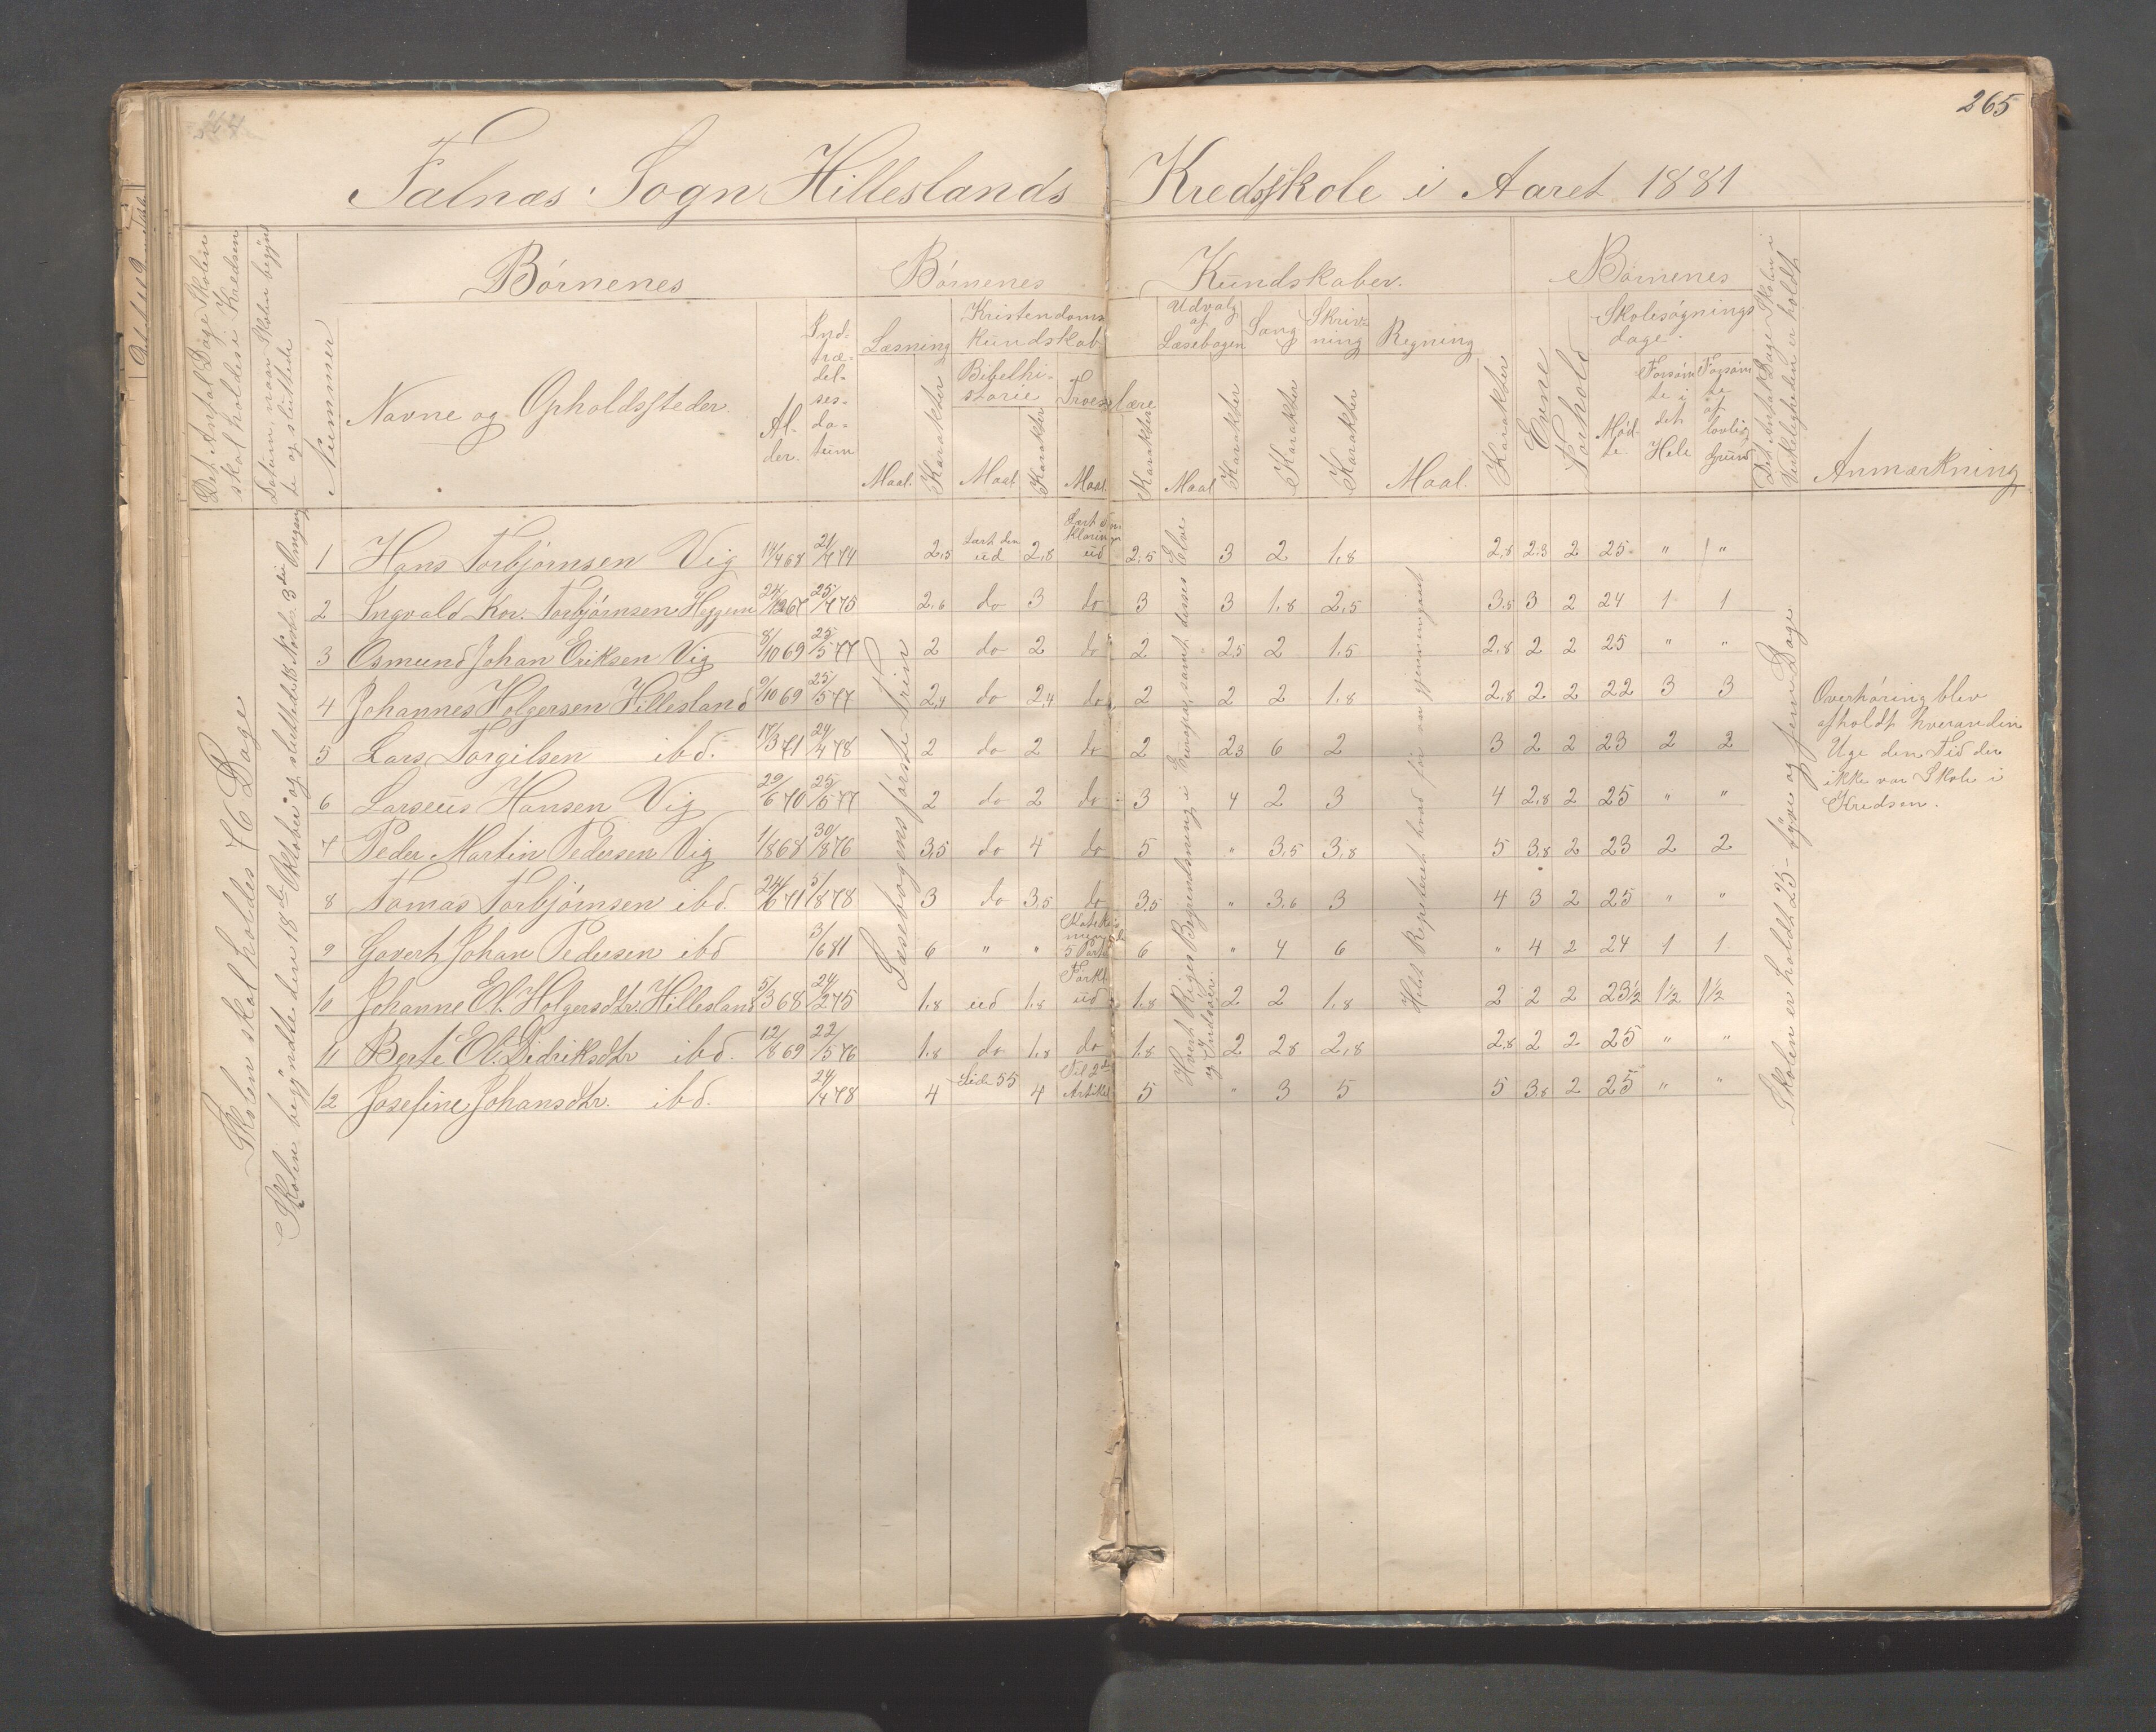 265
Falnæs Sogn Hilleslands Kredsskole i Aaret 1881
Det Antal Dage Skolen skal holdes i Kredsen
Datum, naar Skolen begyndte og sluttede
Nummer
Børnenes
Navne og Opholdssteder.
Alder.
Indtrædelsesdatum
Børnenes Kundskaber.
Læsning
Maal. Karakter
Kristendomskundskab
Bibelhistorie
Maal Karakter
Troeslære
Maal Karakter
Udvalg af Læsebogen
Maal Karakter
Sang
Karakter
Skrivning
Karakter
Regning
Maal. Karakter
Børnenes
Evne
Forhold
Skolesøgningsdage.
Mødte
Forsømte i det Hele
Forsømte af lovlig Grund
Det Antal Dage Skolen i Virkeligheden er holdt
Anmærkning
Skolen skal holdes 76 Dage
Skolen begyndte den 18de Oktober og sluttede 18 Novbr.
Læsebogens første Trin
Hvert Riges Begrændsning i Europa, samt desses Elve og Indsøer.
Helst Repeteret hvad før er gjennemgaaet
Skolen er holdt 25 - tyve og fem Dage
1 Hans Torbjørnsen Vig 14/4 68 21/7 74 2,5 Lært den ud 2,8 Lært Forklaringen ud 2,5 3 2 1,8 2,8 2,3 2 25 " "
2 Ingvald Kor. Torbjørnsen Heggem 24/12 67 25/7 75 2,6 do 3 do 3 3 1,8 2,5 3,5 3 2 24 1 1
3 Osmund Johan Eriksen Vig 8/10 69 25/5 77 2 do 2 do 2 2,5 2 1,5 2,8 2 2 25 " "
4 Johannes Holgersen Hillesland 9/10 69 25/5 77 2,4 do 2,4 do 2 2 2 1,8 2,8 2 2 22 3 3
5 Lars Torgilsen ibd. 17/3 71 24/4 78 2 do 2 do 2 2,3 6 2 3 2 2 23 2 2
6 Larseus Hansen Vig 29/6 70 25/5 77 2 do 2 do 3 4 2 3 4 2,8 2 25 " "
7 Peder Martin Pedersen Vig 1/8 68 30/8 76 3,5 do 4 do 5 " 3,5 3,8 5 3,8 2 23 2 2
8 Tomas Torbjørnsen ibd. 24/6 71 5/8 78 3 do 3,5 do 3,5 " 3,6 3 4 3 2 25 " "
9 Govert Johan Pedersen ibd 3/6 81 6 " " 5 Part 6 " 4 6 " 4 2 24 1 1
10 Johanne El. Holgersdtr. Hillesland 5/3 68 24/2 75 1,8 ud 1,8 Forkl. ud 1,8 2 2 1,8 2 2 2 23½ 1½ 1½
11 Berte El. Didriksdtr ibd. 12/8 69 22/5 76 1,8 do 1,8 do 1,8 2 2,8 2,8 2,8 2 2 25 " "
12 Josefine Johansdtr. ibd. 24/4 78 4 Side 55 4 Til 2den Artikel 5 " 3 5 5 3,8 2 25 " "
Overhøring blev
afholdt hverandin
Uge den Tid der
ikke var Skole i
Kredsen.